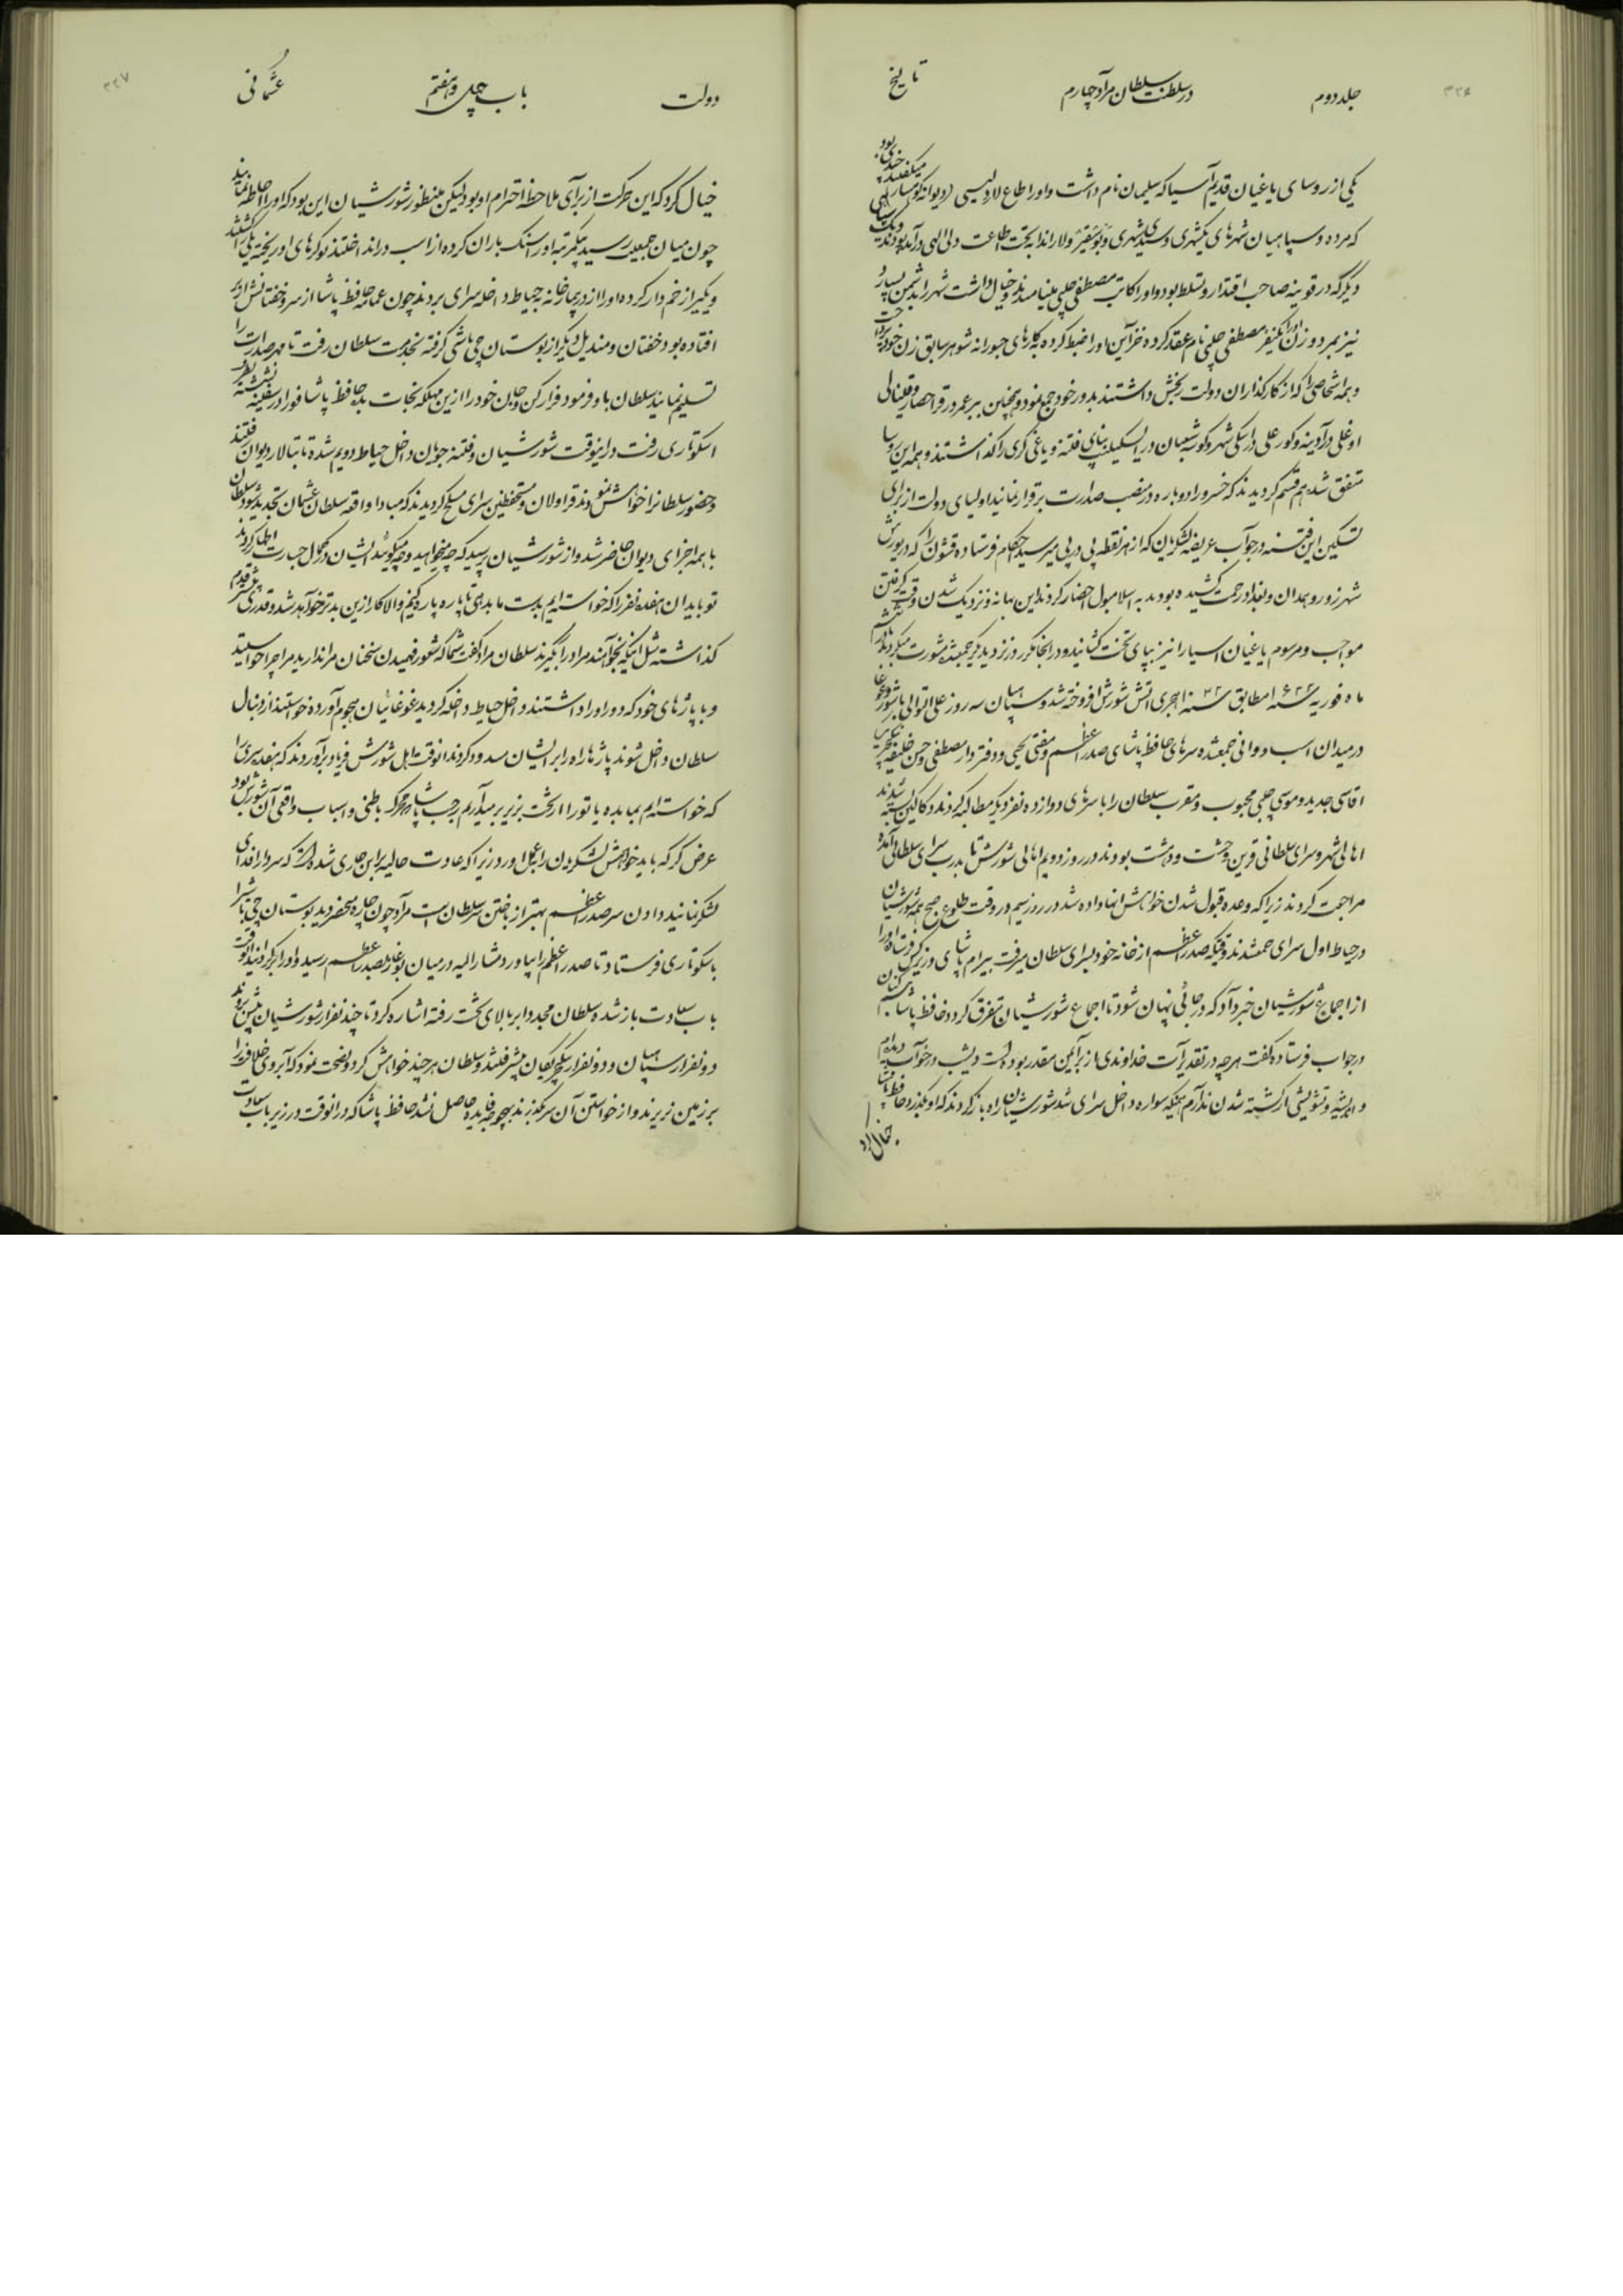 ۳۲۶
جلد دوم
در سلطنت سلطان مراد چهارم
تاریخ
یکی از روسای یاغیان قدیم آسیا که سلیمان نام داشت و او را طاع لار دلیسی (دیوانه کوهسار) میگفتند
که مرده و سپاهیان شهرهای یکیشهری و سیدیشهری و را اندا به تحت اطاعت درآمده بودند
دیگر که در قونیه صاحب اقتدار و تسلط بود و او را کاتب مصطفی چلپی مینامیدند و خیال داشت شهر را بدشمن بسپارد
نیز بمرد و زن او را یکنفر مصطفی چلپی نام عقد کرده خزاین او را ضبط کرده بکارهای جسورانه شوهر سابق زن خود پرداخت
و همه اشخاصی را که از کارگذاران دولت رنجش داشتند بدور خود جمع نمود و همچنین ببر عمر در قراحصار و قلینالی
اوغلی در آدینه و کور علی در اسکی شهر و کور شعبان در بنای فتنه و یاغی گری را گذاشتند و همه این روسا
متفق شده هم قسم گردیدند که خسرو را دوباره در منصب صدارت برقرار نمایند اولیای دولت از برای
تسکین این فتنه در جواب عریضه لشکریان که از هر نقطه پی در پی میرسید احکام فرستاده قشون را که در یورش
شهرزور و همدان و بغداد زحمت کشیده بودند به اسلامبول احضار کردند این بهانه نزدیک شدن وقت گرفتن
مواجب و مرسوم یاغیان آسیا را نیز بپای تخت کشانید و در انجا هر روز نزد یکدیگر جمعشده مشورت میکردند
ماه فوریه سنه ۱۶۳۲ مطابق سنه ۱۰۴۲ هجری آتش شورش افروخته شد و سپاهیان سه روز علی التوالی با شور و غوغا
در میدان اسب دوانی جمعشده سرهای حافظ پاشای صدر اعظم و مفتی یحیی و دفتردار مصطفی و حسن خلیفه
آقاسی جدید و موسی چلپی محبوب و مقرب سلطان را با سرهای دوازده نفر دیگر مطالبه کردند دکاکین بسته شدند
اهالی شهر و سرای سلطانی قرین وحشت و دهشت بودند در روز دویم اهالی شورش تا بدرب سرای سلطانی آمده
مراجعت کردند زیرا که وعده قبول شدن خواهش انها داده شد در روز سیم در وقت طلوع صبح همه شورشیان
در حیاط اول سرای جمعشدند وقتیکه صدر اعظم از خانه خود بسرای سلطان میرفت بیرام پاشای وزیر کس فرستاده او را
از اجماع شورشیان خبر داد که در جائی پنهان شود تا اجماع شورشیان متفرق گردد حافظ پاشا تبسم کنان
در جواب فرستاده گفت هرچه در تقدیرات خداوندی از برای من مقدر بوده است دیشب در خواب دیده ام
و اندیشه و تشویشی از کشته شدن ندارم همینکه سواره داخل سرای شد شورشیان راه باز کردند که او بگذرد حافظ پاشا
خیال کرد
دولت
باب چهل و هفتم
عثمانی
۳۲۷
خیال کرد که این حرکت از برای ملاحظه احترام او بود لیکن منظور شورشیان این بود که او را احاطه نمایند
چون میان جمعیت رسید یکمرتبه او را سنک باران کرده از اسب در انداختند نوکرهای او ریخته یکی را کشتند
و یکیرا زخم دار کرده او را از در بیمارخانه بحیاط داخله سرای بردند چون عمامه حافظ پاشا از سر و خفتانش از بر
افتاده بود خفتان و مندیل دیگر از بوستانجی باشی گرفته بخدمت سلطان رفت تا مهر صدارت را
تسلیم نماید سلطان باو فرمود فرار کن و جان خود را ازین مهلکه نجات بده حافظ پاشا فورا در سفینه نشسته بطرف
اسکوتاری رفت در اینوقت شورشیان و فتنه جویان داخل حیاط دویم شده تا بتالار دیوان رفتند
و حضور سلطانرا خواهش نمودند قراولان و مستحفظین سرای مسلح گردیدند که مبادا واقعه سلطان عثمان تجدید شود سلطان
با همه اجزای دیوان حاضر شد و از شورشیان پرسید که چه میخواهید و چه میگوئید ایشان در کمال جسارت اظهار کردند
تو باید ان هفده نفر را که خواسته ایم بدست ما بدهی تا پاره پاره کنیم والا کار ازین بدتر خواهد شد و قدری پیشتر قدم
گذاشته مثل اینکه بخواهند مراد را بگیرند سلطان مراد گفت شما که شعور فهمیدن سخنان مرا ندارید مرا چرا خواستید
و با پاژهای خود که دور او را داشتند داخل حیاط داخله گردید غوغائیان هجوم آورده خواستند از دنبال
سلطان داخل شوند پاژها راه را بر ایشان مسدود کردند انوقت اهل شورش فریاد برآوردند که هفده سری را
که خواسته ایم بما بده یا تو را از تخت بزیر میآریم رجب پاشا که محرک باطنی و اسباب واقعی آن شورش بود
عرض کرد که باید خواهش لشکریان را بعمل آورد زیرا که عادت حالیه براین جاری شده است که سردار را فدای
لشکر نمایند و دادن سر صدر اعظم بهتر از باختن سر سلطان است مراد چون چاره منحصر دید بوستانجی باشی را
باسکوتاری فرستاد تا صدر اعظم را بیاورد مشارالیه در میان بوغاز بصدر اعظم رسید و او را برگردانید انوقت
باب سعادت باز شده سلطان مجددا بر بالای تخت رفته اشاره کرد تا چند نفر از شورشیان پیش روند
دو نفر از سپاهیان و دو نفر از ینگچریکیان پیشتر رفتند و سلطان هرچند خواهش کرد و نصحت نمود که آبروی خلافت را
بر زمین نریزند و از خواستن آن سر بگذرند هیچوجه فایده حاصل نشد حافظ پاشا که در انوقت در زیر باب سعادت